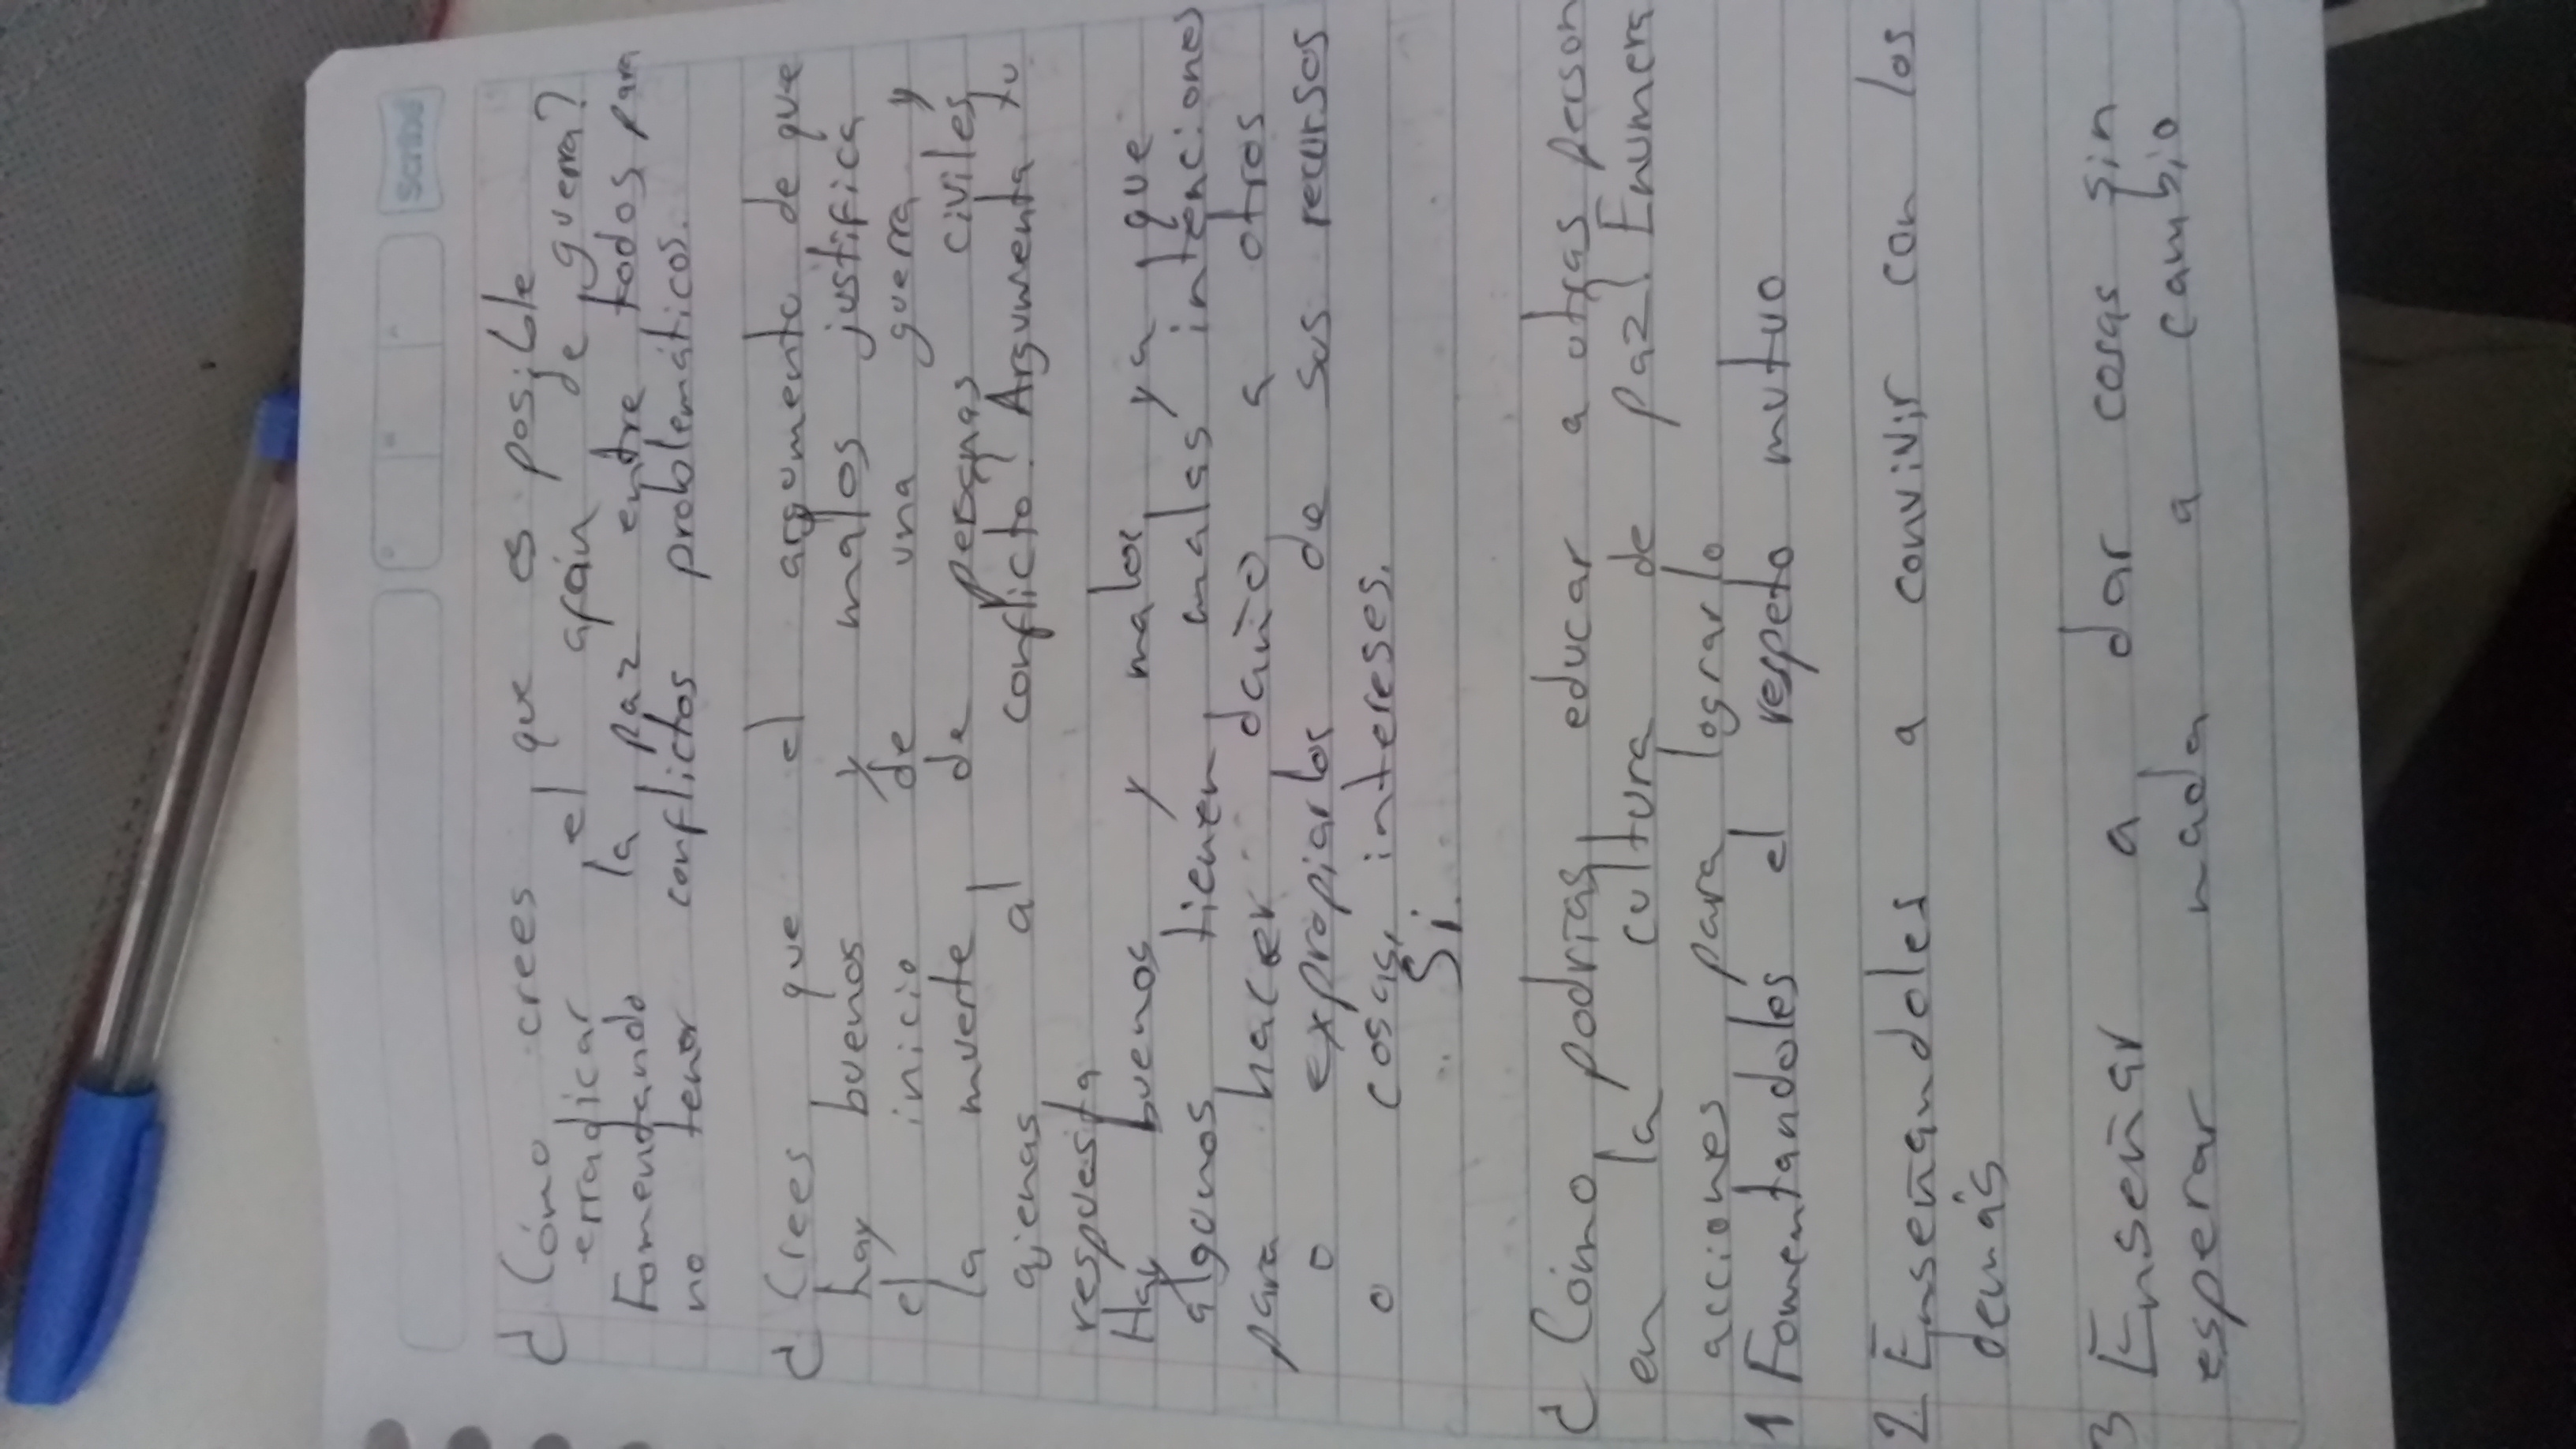 Scribe
¿Cómo crees que es posible
erradicar el afán de guerra?
Fomentando la paz entre todos para
no tener conflictos problemáticos.
¿Crees que el argumento de que
hay buenos y malos justifica
el inicio de una guerra y
la muerte de personas civiles
ajenas al conflicto? Argumenta tu
respuesta
Hay buenos y malos ya que
algunos tienen malas intenciones
para hacer daño a otros
o expropiarlos de sus recursos
o cosas, intereses.
Si.
¿Cómo podrías educar a otras person
en la cultura de paz? Enumera
acciones para lograrlo
1 Fomentandoles el respeto mutuo
2 Enseñandoles a convivir con los
demás
3 Enseñar a dar cosas sin
esperar nada a cambio